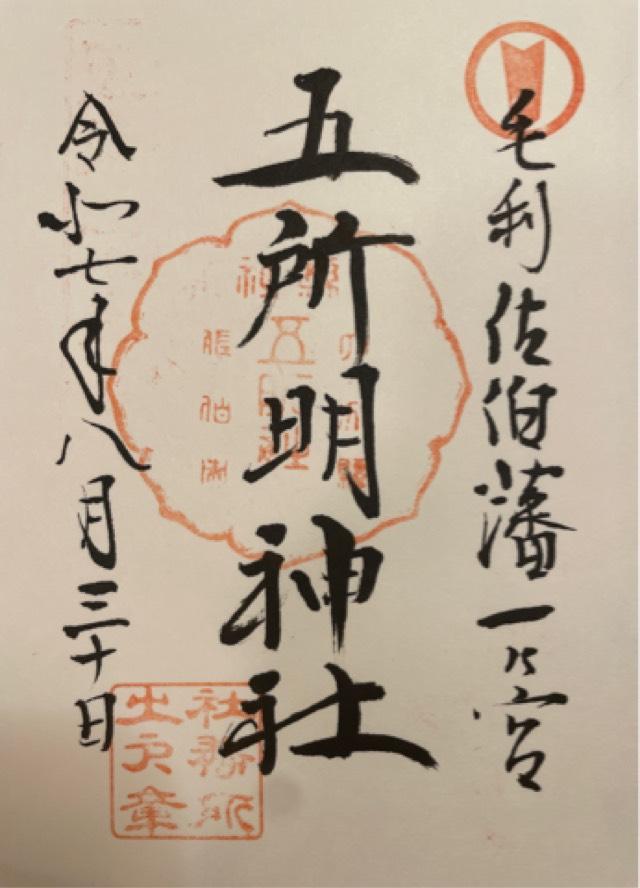 毛利佐伯藩一乃宮
五所明神社
令和七年八月三十日
社務所
之印章